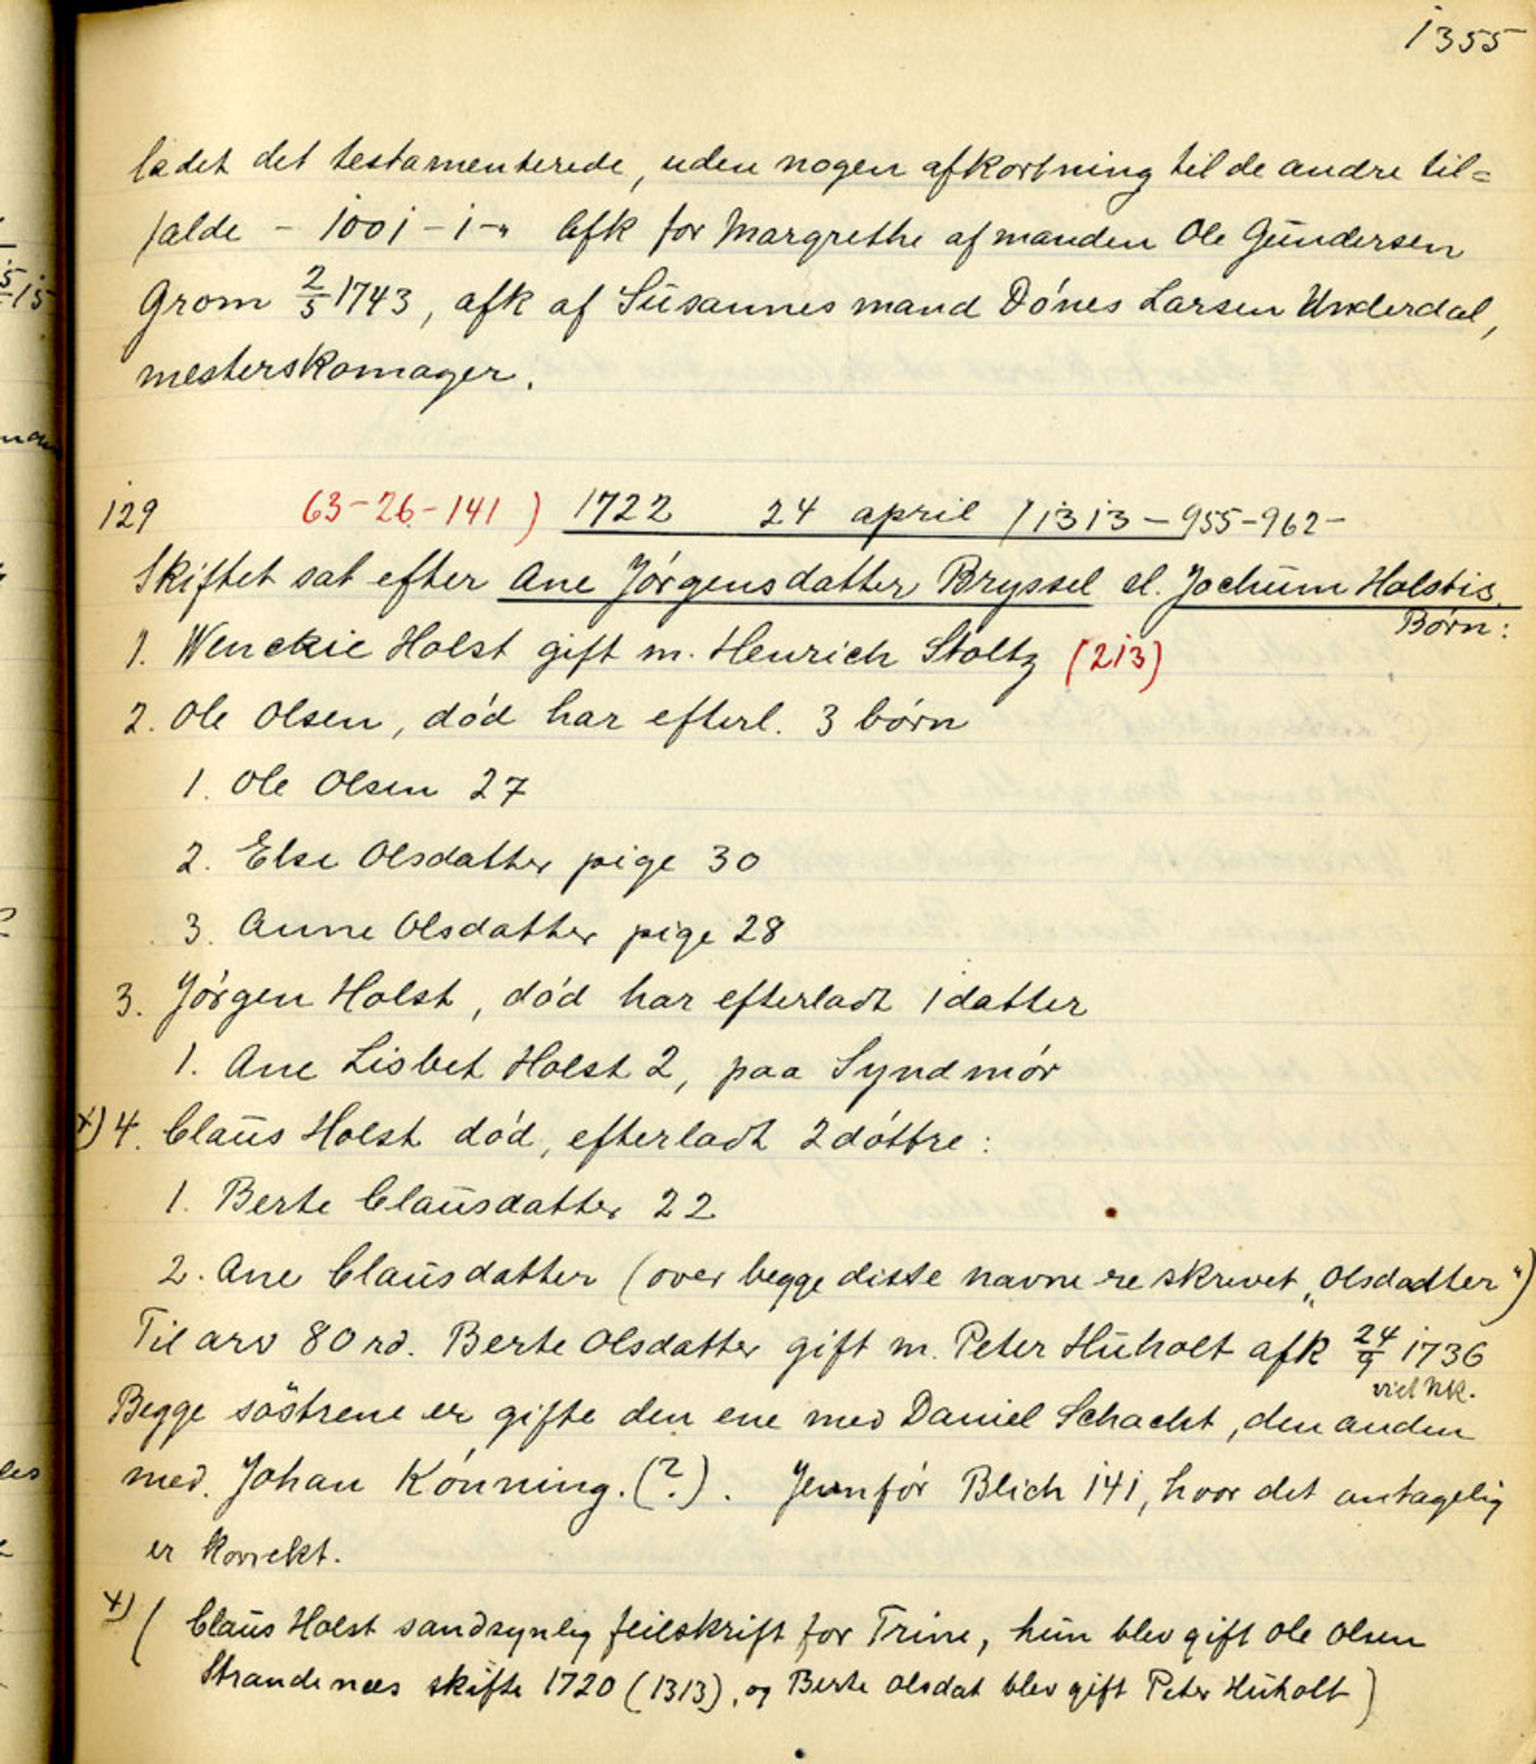 1355
ladet det testamenterede, uden nogen afkortning til de andre til=
falde - 1001-1-" Afk for Margrethe af manden Ole Gundersen
Grom 2/5 1743, afk af Susannes mand Dónes Larsen Underdal,
mesterskomager.
129 63-26-141) 1722 24 april /1313-955-962-
Skiftet sat efter Ane Jórgensdatter Bryssel sl. Jochum Holstis
Børn:
1. Wenckie Holst gift m. Henrich Stoltz (213)
2. Ole Olsen, død har efterl. 3 børn
1. Ole Olsen 27
2. Else Olsdatter pige 30
3. Anne Olsdatter pige 28
3. Jórgen Holst, dód har efterladt 1 datter
1. Ane Lisbet Holst 2, paa Syndmór
x) 4. Claus Holst dód, efterladt 2 dóttre:
1. Berte Clausdatter 22
2. Ane Clausdatter (over begge disse navne re skrevet „Olsdadter")
Til arv 80 rd. Berte Olsdatter gift m. Peter Huholt afk 24/9 1736
viel NK.
Begge söstrene er gifte den ene med Daniel Schacht, den anden
med. Johan Kónning. (?). Jevnfór Blich 141, hvor det antagelig
er korrekt.
x) ( Claus Holst sandsynlig feilskrift for Trine, hun blev gift Ole Olsen
Strandenæs skifte 1720 (1313), og Berte Olsdat blev gift Peter Huholt)